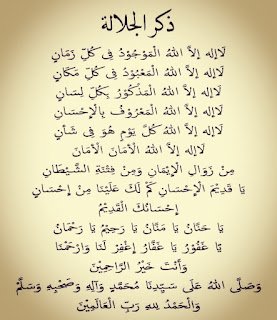 ذكر الجلالة
لَاإِلٰه إِلاَّ اللهُ الْمَوْجُوْدُ فِى كُلِّ زَمَانٍ
لَاإِلٰه إِلاَّ اللهُ الْمَعْبُوْدُ فِى كُلِّ مَكَانٍ
لَاإِلٰه إِلاَّ اللهُ الْمَذْكُوْرُ بِكُلِّ لِسَانٍ
لَاإِلٰه إِلاَّ اللهُ الْمَعْرُوْفُ بِالْإِحْسَانِ
لَاإِلٰه إِلاَّ اللهُ كُلَّ يَوْمٍ هُوَ فِى شَأْنٍ
لَاإِلٰه إِلاَّ اللهُ الْأَمَانَ الْأَمَانَ
مِنْ زَوَالِ الْإِيْمَانِ وَمِنْ فِتْنَةِ الشَّيْطَانِ
يَا قَدِيْمَ الْإِحْسَانِ كَمْ لَكَ عَلَيْنَا مِنْ إِحْسَانٍ
إِحْسَانُكَ الْقَدِيْمُ
يَا حَنَّانُ يَا مَنَّانُ يَا رَحِيْمُ يَا رَحْمَانُ
يَا غَفُوْرُ يَا غَفَّارُ إِغْفِرْ لَنَا وَارْحَمْنَا
وَأَنْتَ خَيْرُ الرَّاحِمِيْنَ
وَصَلَّى اللهُ عَلَى سَيِّدِنَا مُحَمَّدٍ وَآلِهِ وَصَحْبِهِ وَسَلَّمَ
وَالْحَمْدُ لِلهِ رَبِّ الْعَالَمِيْنَ